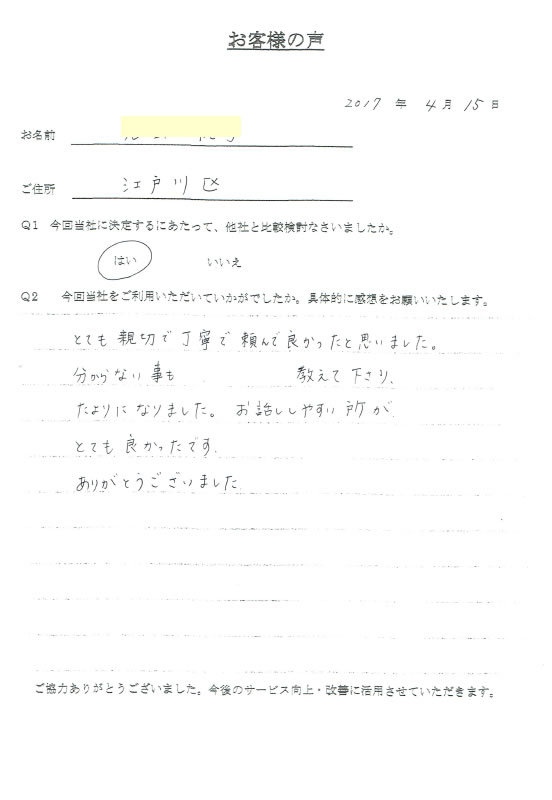 お客様の声
2017 年 4月 15日
お名前
ご住所 江戸川区
Q1 今回当社に決定するにあたって、他社と比較検討なさいましたか。
はい いいえ
Q2 今回当社をご利用いただいていかがでしたか。具体的に感想をお願いいたします。
とても親切で丁寧で頼んで良かったと思いました。
分からない事も 教えて下さり、
たよりになりました。お話ししやすい所が
とても良かったです.
ありがとうございました.
ご協力ありがとうございました。今後のサービス向上・改善に活用させていただきます。